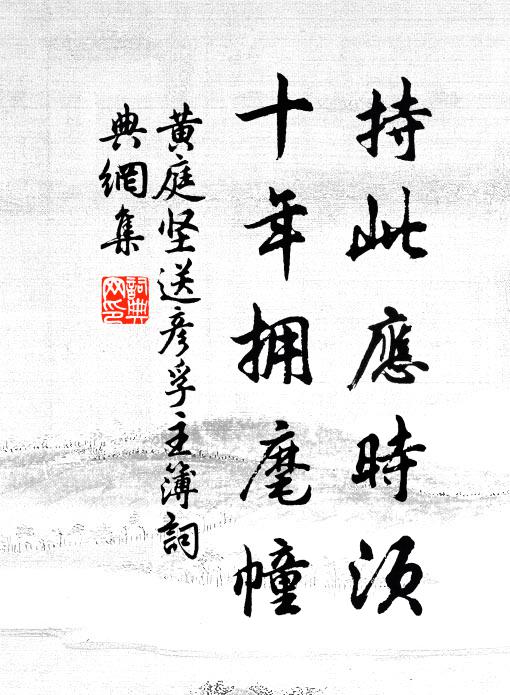 持此應時須
十年拥麾幢
黄庭坚送彦孚主簿詞
典網集
詞典
网印